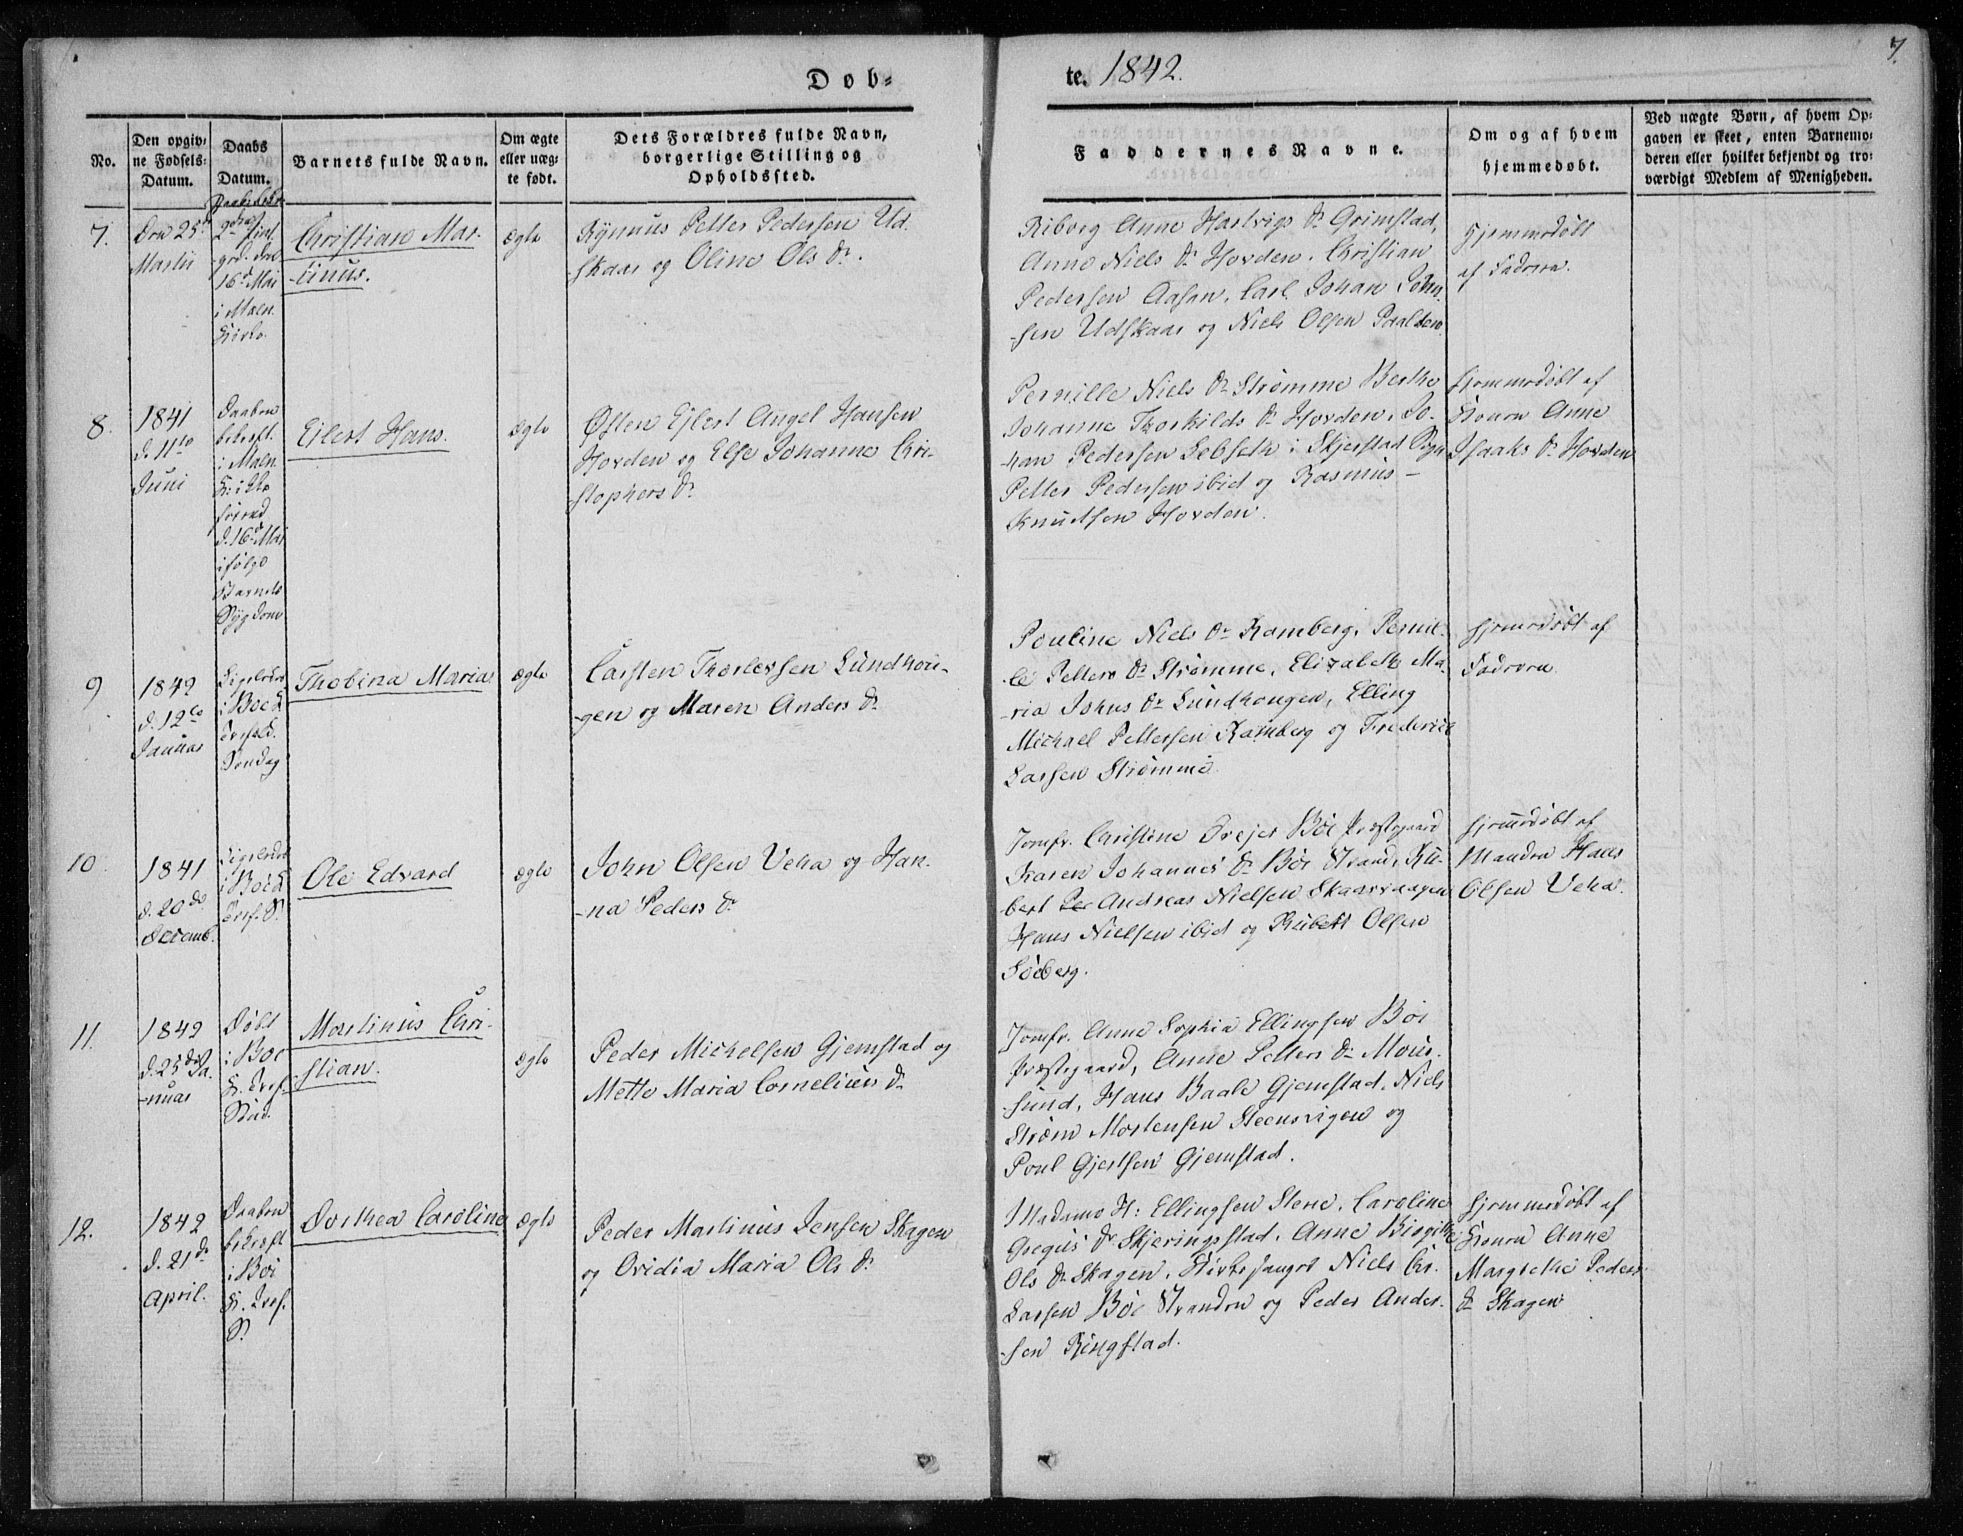 Døb-
te. 1842.
7.
No.
Den opgiv-
ne Fødsels-
Datum.
Daabs
Datum.
Barnets fulde Navn.
Om ægte
eller uæg-
te født.
Dets Forældres fulde Navn,
borgerlige Stilling og
Opholdssted.
Faddernes Navne.
Om og af hvem
hjemmedøbt.
Ved uægte Børn, af hvem Op-
gaven er skeet, enten Barnemo-
deren eller hvilket bekjendt og tro-
værdigt Medlem af Menigheden.
7.
Den 25de
Martii
16d Mai
i Maln.
Kirke.
Christian Mar-
-tinus.
ægte
Petter Pedersen Ud-
skaar og Oline Ols Dr.
Riborg Anne Hartvigs Dr Grimstad,
Anne Niels Dr Hovden, Christian
Pedersen Aasan, Carl Johan John-
-sen Udskaar og Niels Olsen
Hjemmedøbt
af Faderen.
8.
1841
d. 11te
Juni
Daaben
bekræft.
i Maln.
d. 16d Mai
ifølge
Barnets
Sygdom
Ejlert Hans.
ægte
Østen Ejlert Angel Hansen
Hovden og Else Johanne Chri-
-stophers Dr
Pernille Niels Dr Strømme Berthe
Johanne Thorkilds Dr Hovden, Jo-
-han Pedersen Lebseth i Skjerstad Pgn
Petter Pedersen ibid og Rasmus
Knudsen Hovden.
Hjemmedøbt af
Konen Anne
Isaaks Dr Hovden
9
1842
d. 12te
Januar
i Boe K
Søndag
Thobina Maria
ægte
Carsten Thorlevsen Lundhou-
-gen og Maren Anders Dr
Pouline Niels Dr Ramberg, Pernil-
-le Petters Dr Strømme, Elizabeth Ma-
-ria Johns Dr Lundhougen, Elling
Michael Pettersen Ramberg og Frederik
Larsen Strømme.
Hjemedøbt af
Faderen
10
1841
d. 20de
Decemb.
i Boe K
Ole Edvard
ægte
John Olsen Veha og Han-
-na Peders Dr
Jomfr. Christine Dreyer Böe Præstegaard
Karen Johannes Dr Böe Strand, Ru-
bert Andreas Nielsen Skaarvaagen
Hans Nielsen ibid og Rubert Olsen
Søeberg.
Hjemmedøbt af
Manden Hans
Olsen Veha.
11.
1842
d. 25de Ja-
-nuar
Døbt
i Boe
K.
Martinus Chri-
-stian.
ægte
Peder Michelsen Gjemstad og
Mette Maria Cornelius Dr
Jomfr. Anne Sophia Ellingsen Böe
Præstegaard, Anne Petters Dr Mour-
sund, Hans Baale Gjemstad, Niels
Strøm Mortensen Steensvigen og
Poul Gjertsen Gjemstad.
12.
1842
d. 21de
April.
Daaben
bekræft
i Böe
K.
Dorthea Caroline
ægte
Peder Martinus Jensen Skagen
og Ovidia Maria Ols Dr
Madame H: Ellingsen Stene, Caroline
Gregus Dr Skjeringstad, Anne Birgitte
Ols Dr Skagen, Kirkesanger Niels Chr.
Larsen Böe Stranden og Peder Ander-
-sen Ringstad.
Hjemmedøbt af
Konen Anne
Margrethe Peders
Dr Skagen